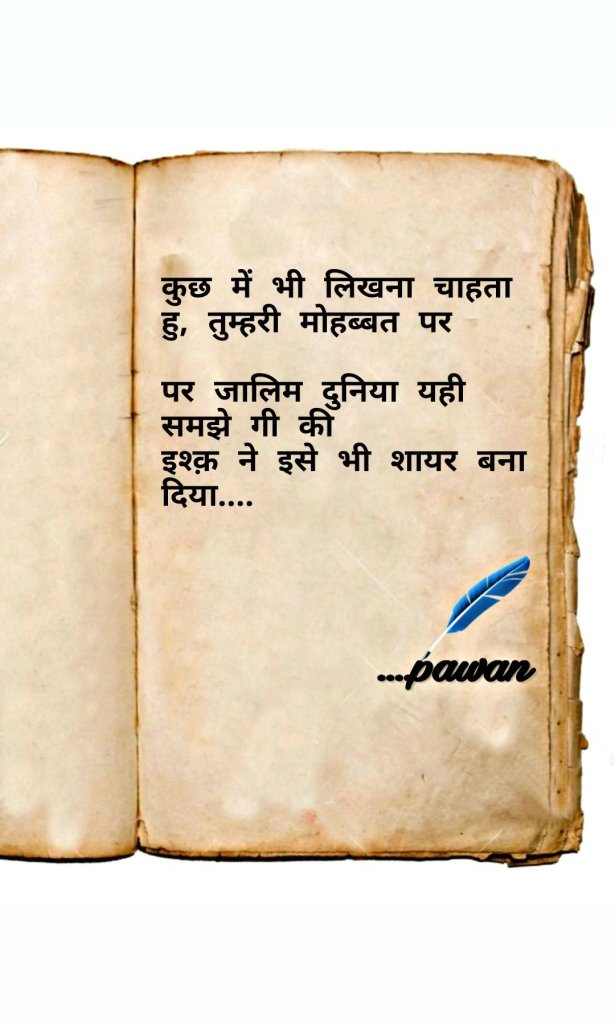 कुछ में भी लिखना चाहता
हु, तुम्हरी मोहब्बत पर
पर जालिम दुनिया यही
समझे गी की
इश्क़ ने इसे भी शायर बना
दिया....
....pawan